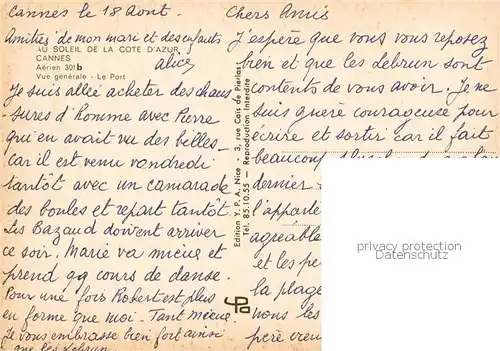 Cannes le 18 Aout.
Amitiés de mon mari et des enfants
Alice
AU SOLEIL DE LA COTE D'AZUR
CANNES
Aérien 301 b
Vue générale - Le Port
Chers Amis
J'espère que vous vous reposez
bien et que les Lebrun sont
contents de vous avoir. Je ne
suis guère courageuse pour
écrire et sortir car il fait
beaucoup
dernier
l'apparte
agréable
et les pe
la plage
nous les
père
Je suis allée acheter des chaus
sures d'homme avec Pierre
qui en avait vu des belles
car il est venu vendredi
tantôt avec un camarade
des boules et repart tantôt
Les Bazaud doivent arriver
ce soir. Marie va mieux et
prend qq cours de danse.
Pour une fois Robert est plus
en forme que moi. Tant mieux
Je vous embrasse bien fort ainsi
que les Lebrun
Edition Y. P. A. Nice - 3, rue Caïs de Pierlas
Tél. 85.10.55 - Reproduction Interdite
privacy protection
Datenschutz